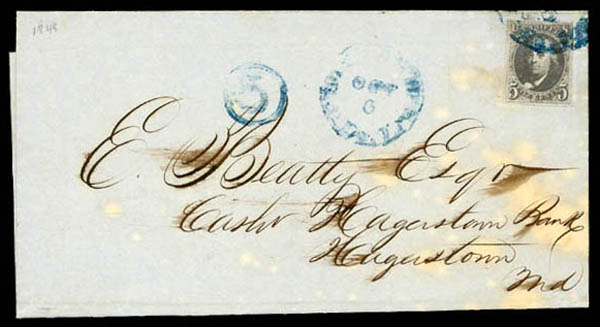 1848
5
5 5
E. Beatty Esqr
Cashr Hagerstown Bank
Hagerstown
Md